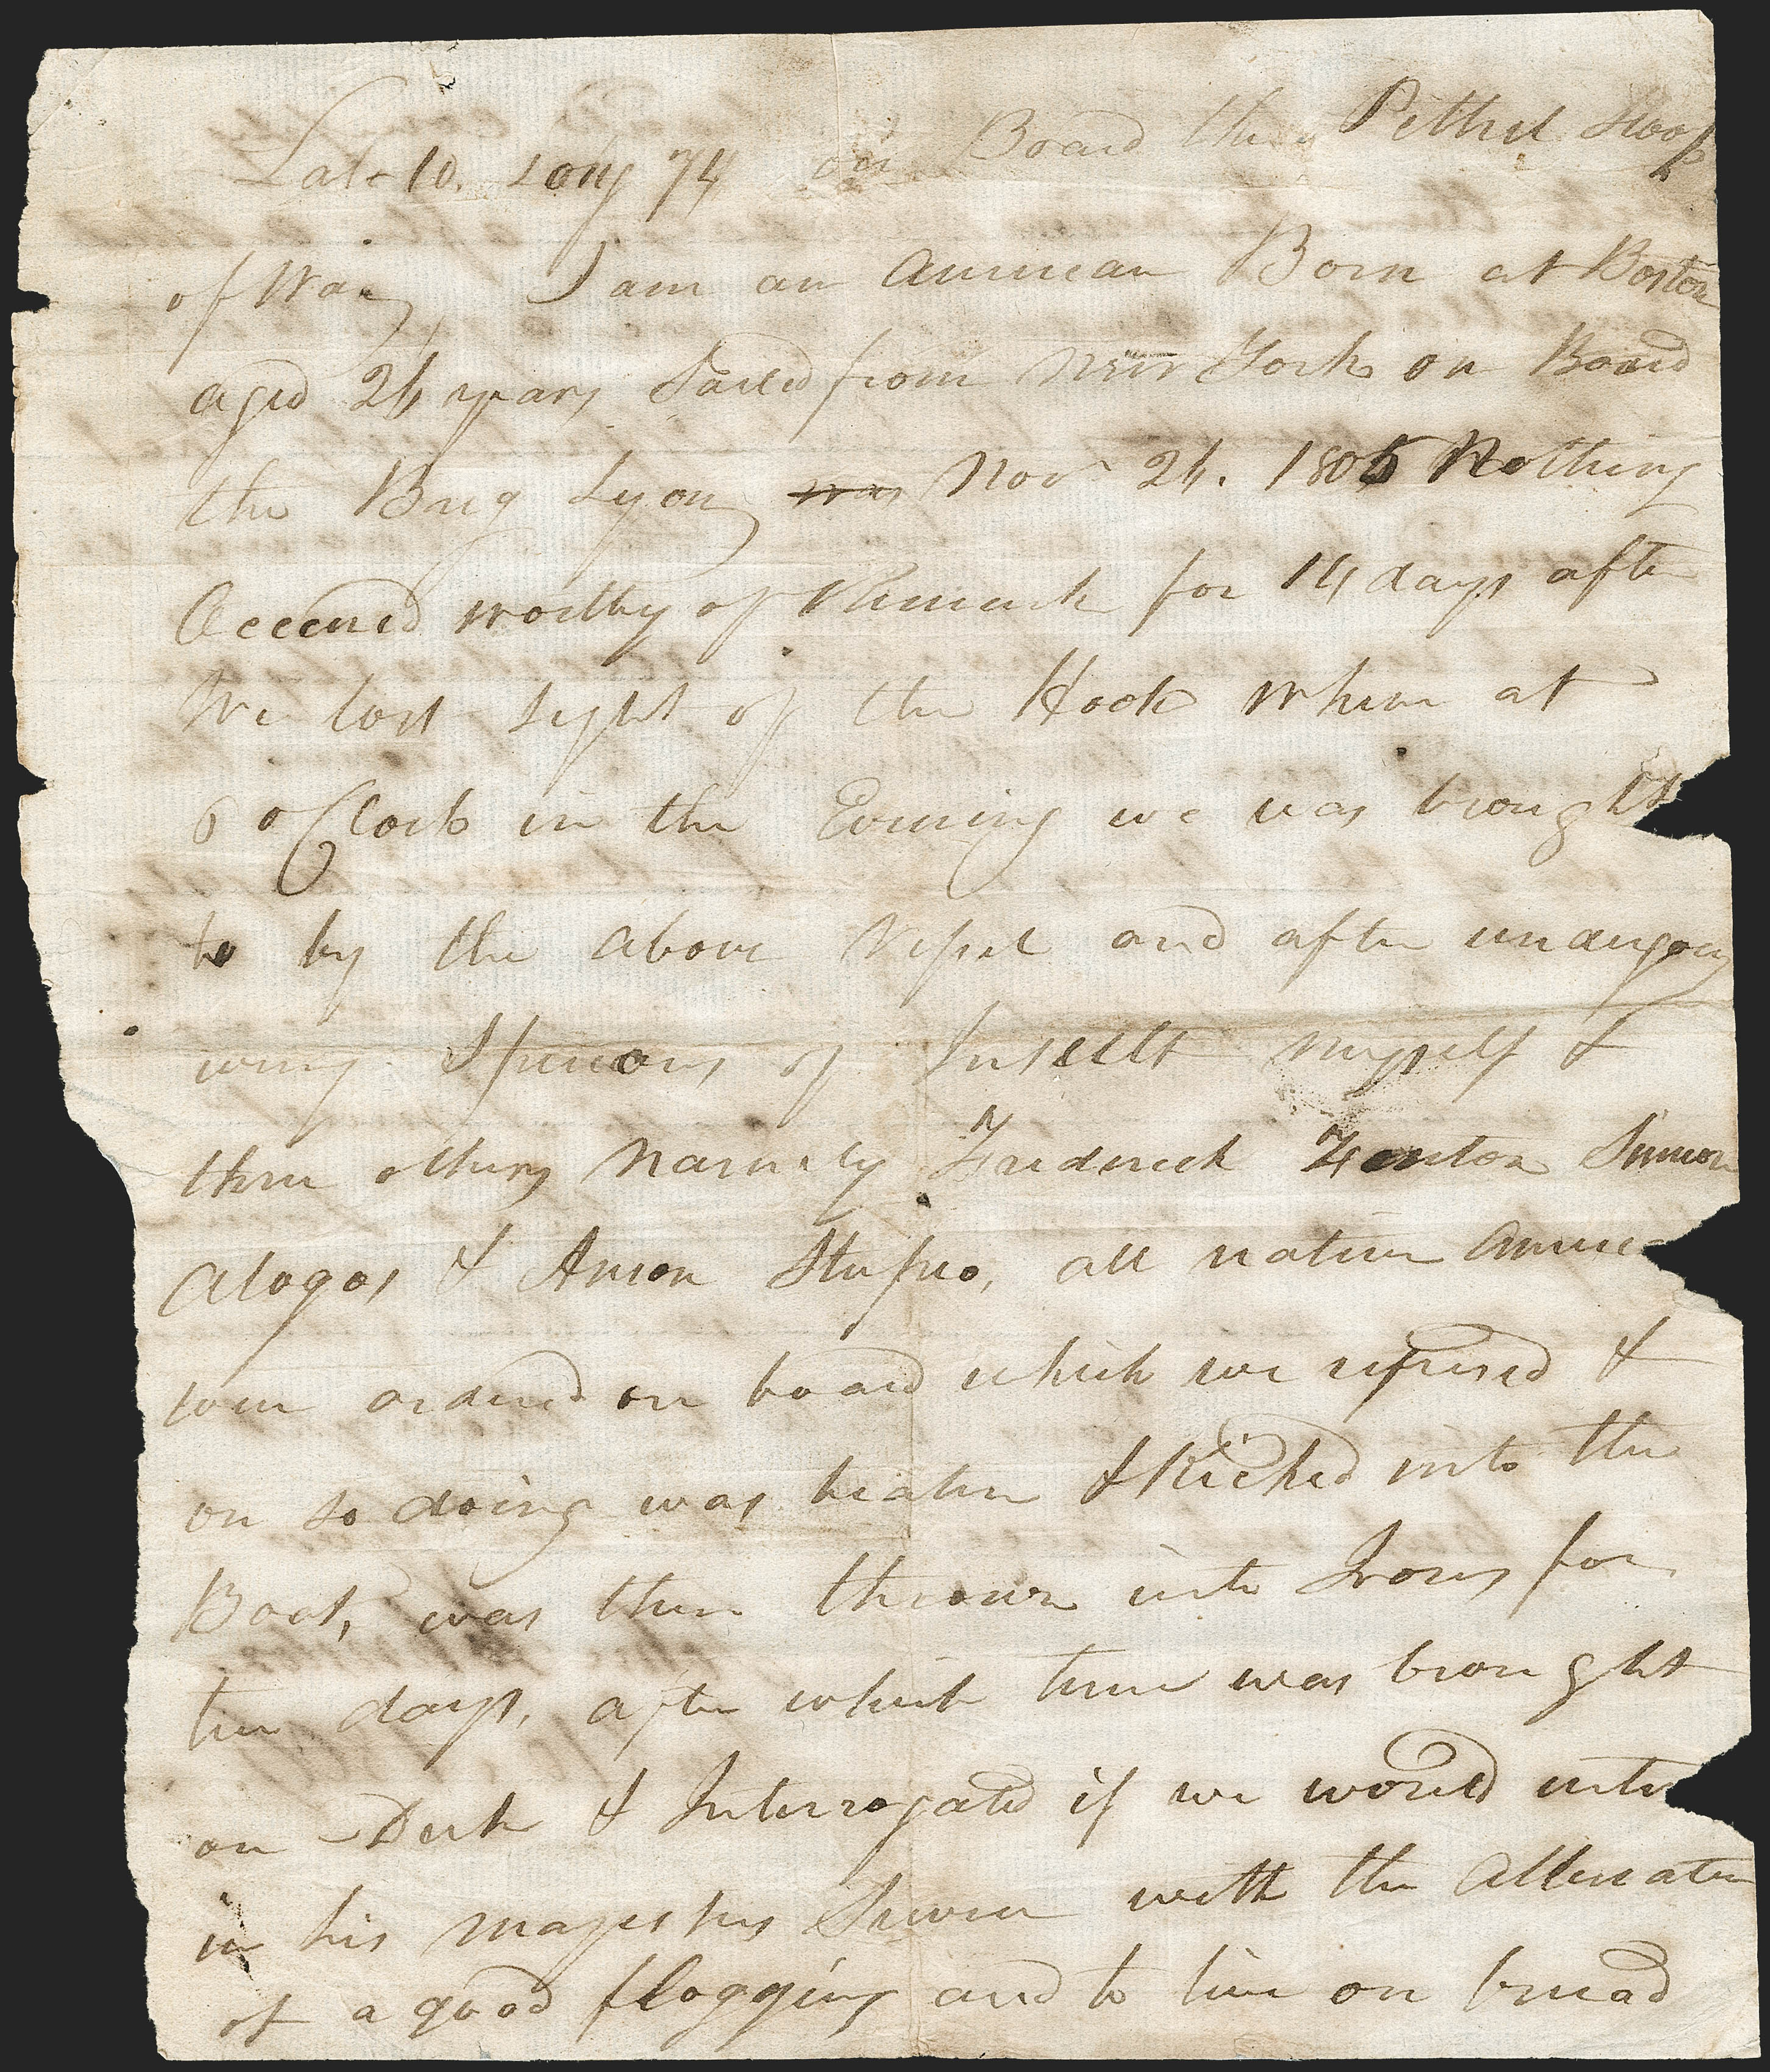 Late 10. Long 74 on Board the Pethel Sloop
of War, I am an American Born at Boston
aged 26 years Sailed from New York on Board
the Brig Lyon, was Nov 26. 1805 Nothing
Occured worthy of Remark for 14 days after
We lost sight of the Hook when at
6 oClock in the Evening we was brought
to by the above Vessel and after undergoing
every of Insult myself &
three others Namely Frederick Fenton Simeon
& Anson all native Americ
were ordered on board which we refused &
on so doing was beaten & Kicked into the
Boat, was then thrown into Irons for
ten days, after which time was brought
on Deck & Interrogated if we would enter
in his majestys Service with the Alternative
of a good flogging and to live on bread